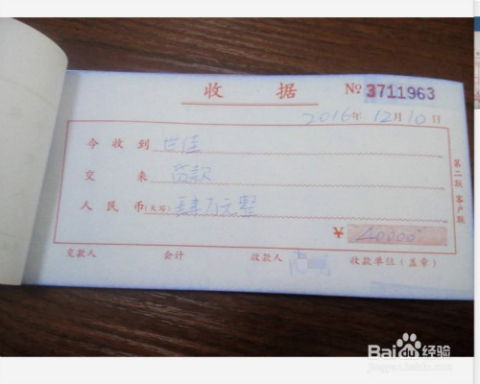 收 据
№ 3711963
2016年 12月 10日
今收到 世佳
交来 货款
人民币(大写) 肆万元整
¥ 40000
交款人 会计 收款人 收款单位(盖章)
第二联 客户联
Baidu经验
jingyan.baidu.com